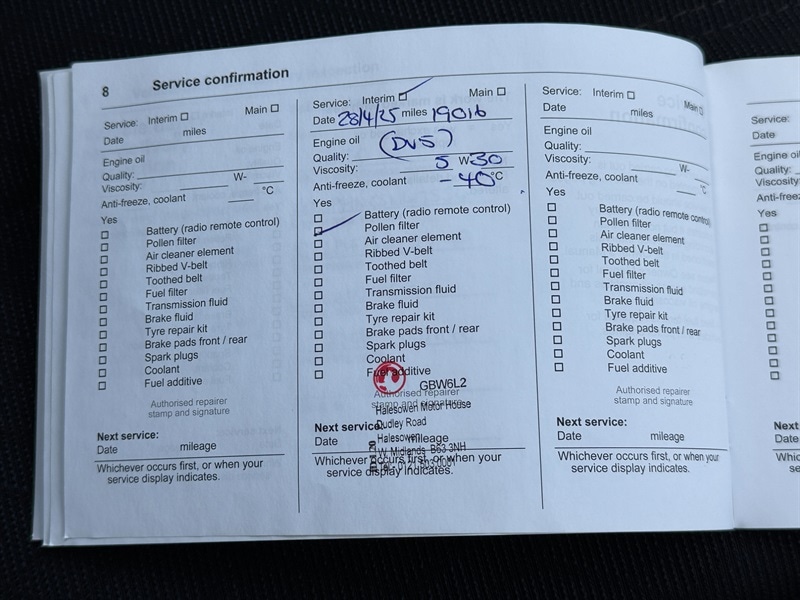 8 Service confirmation
Service: Interim Main
Date miles
Engine oil
Quality:
Viscosity: W-
Anti-freeze, coolant °C
Yes
Battery (radio remote control)
Pollen filter
Air cleaner element
Ribbed V-belt
Toothed belt
Fuel filter
Transmission fluid
Brake fluid
Tyre repair kit
Brake pads front / rear
Spark plugs
Coolant
Fuel additive
Authorised repairer
stamp and signature
Next service:
Date mileage
Whichever occurs first, or when your
service display indicates.
Service: Interim Main
Date 28/4/25 miles 19016
Engine oil (DV5)
Quality:
Viscosity: 5 W-30
Anti-freeze, coolant -40°C
Yes
Battery (radio remote control)
Pollen filter
Air cleaner element
Ribbed V-belt
Toothed belt
Fuel filter
Transmission fluid
Brake fluid
Tyre repair kit
Brake pads front / rear
Spark plugs
Coolant
Fuel additive
GBW6L2
Authorised repairer
stamp and signature
Halesowen Motor House
Dudley Road
Next service:
Halesowen
Date mileage
W. Midlands B63 3NH
Whichever occurs first, or when your
service display indicates.
Service: Interim Main
Date miles
Engine oil
Quality:
Viscosity: W-
Anti-freeze, coolant °C
Yes
Battery (radio remote control)
Pollen filter
Air cleaner element
Ribbed V-belt
Toothed belt
Fuel filter
Transmission fluid
Brake fluid
Tyre repair kit
Brake pads front / rear
Spark plugs
Coolant
Fuel additive
Authorised repairer
stamp and signature
Next service:
Date mileage
Whichever occurs first, or when your
service display indicates.
Service:
Date
Engine oil
Quality:
Viscosity:
Anti-freeze
Yes
Next
Date